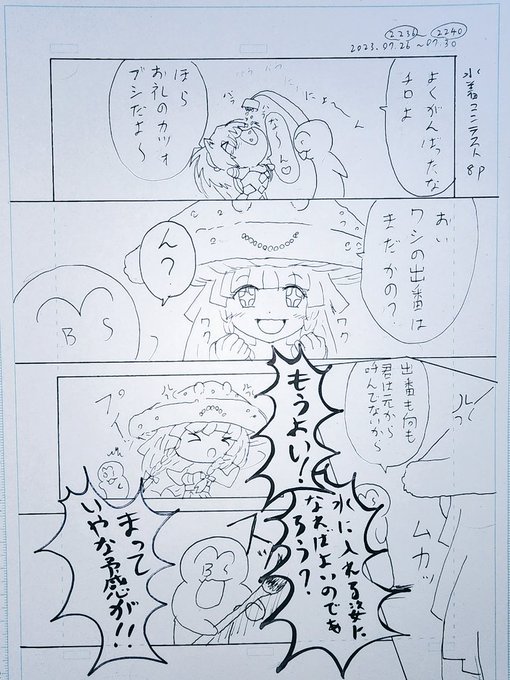 2236~2240
2023.07.26~07.30
水着コンテスト 8P
よくがんばったな
チロよ
ほら
お礼のカツオ
ブシだよ〜
おい
ワシの出番は
まだかの?
ん?
ワク
ワク
BS
出番も何も
君は元から
呼んでないから
ムカッ
もうよい!
プイ
水に入れる姿に
なればよいのであ
ろう?
まって
いやな予感が!!